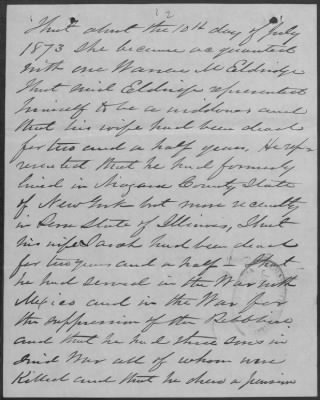 2
That about the 10th day of July
1873 she became acquainted
with one Warren M Eldridge
That said Eldridge represented
himself to be a widower and
that his wife had been dead
for two and a half years. He rep-
resented that he had formerly
lived in Niagara County State
of New York but more recently
in State of Illinois, That
his wife Sarah had been dead
for two years and a half - That
he had served in the War with
Mexico and in the War for
the suppression of the Rebellion
and that he had three sons in
said War all of whom were
Killed and that he drew a pension